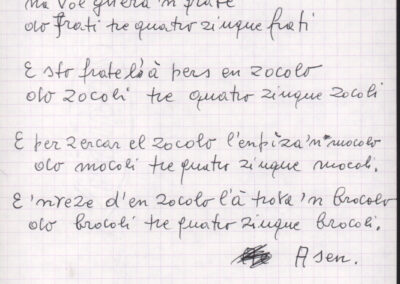 na vol ghera 'n frate
olo frati tre quatro zinque frati
E sto frate l'à pers en zocolo
olo zocoli tre quatro zinque zocoli
E per zercar el zocolo l'enpiza 'n mocolo
olo mocoli tre quatro zinque mocoli.
E 'nveze d'en zocolo l'à trova 'n brocolo
olo brocoli tre quatro zinque brocoli.
Asen.